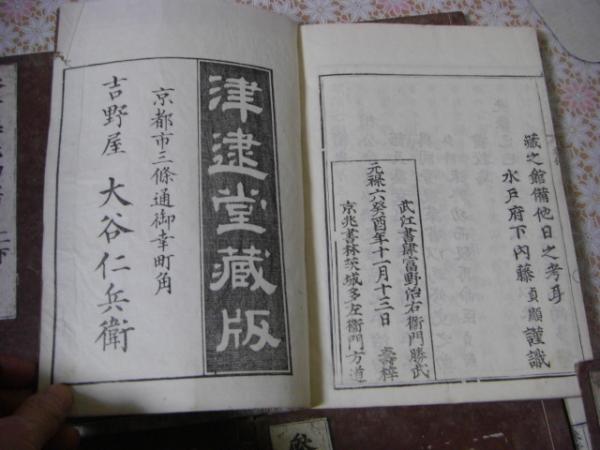 藏之館備他日之考耳
水戸府下内藤貞顯謹識
武江書肆富野治右衞門勝武
元祿六癸酉年十一月十三日
壽梓
京兆書林茨城多左衞門方道
津逮堂藏版
京都市三條通御幸町角
吉野屋 大谷仁兵衛